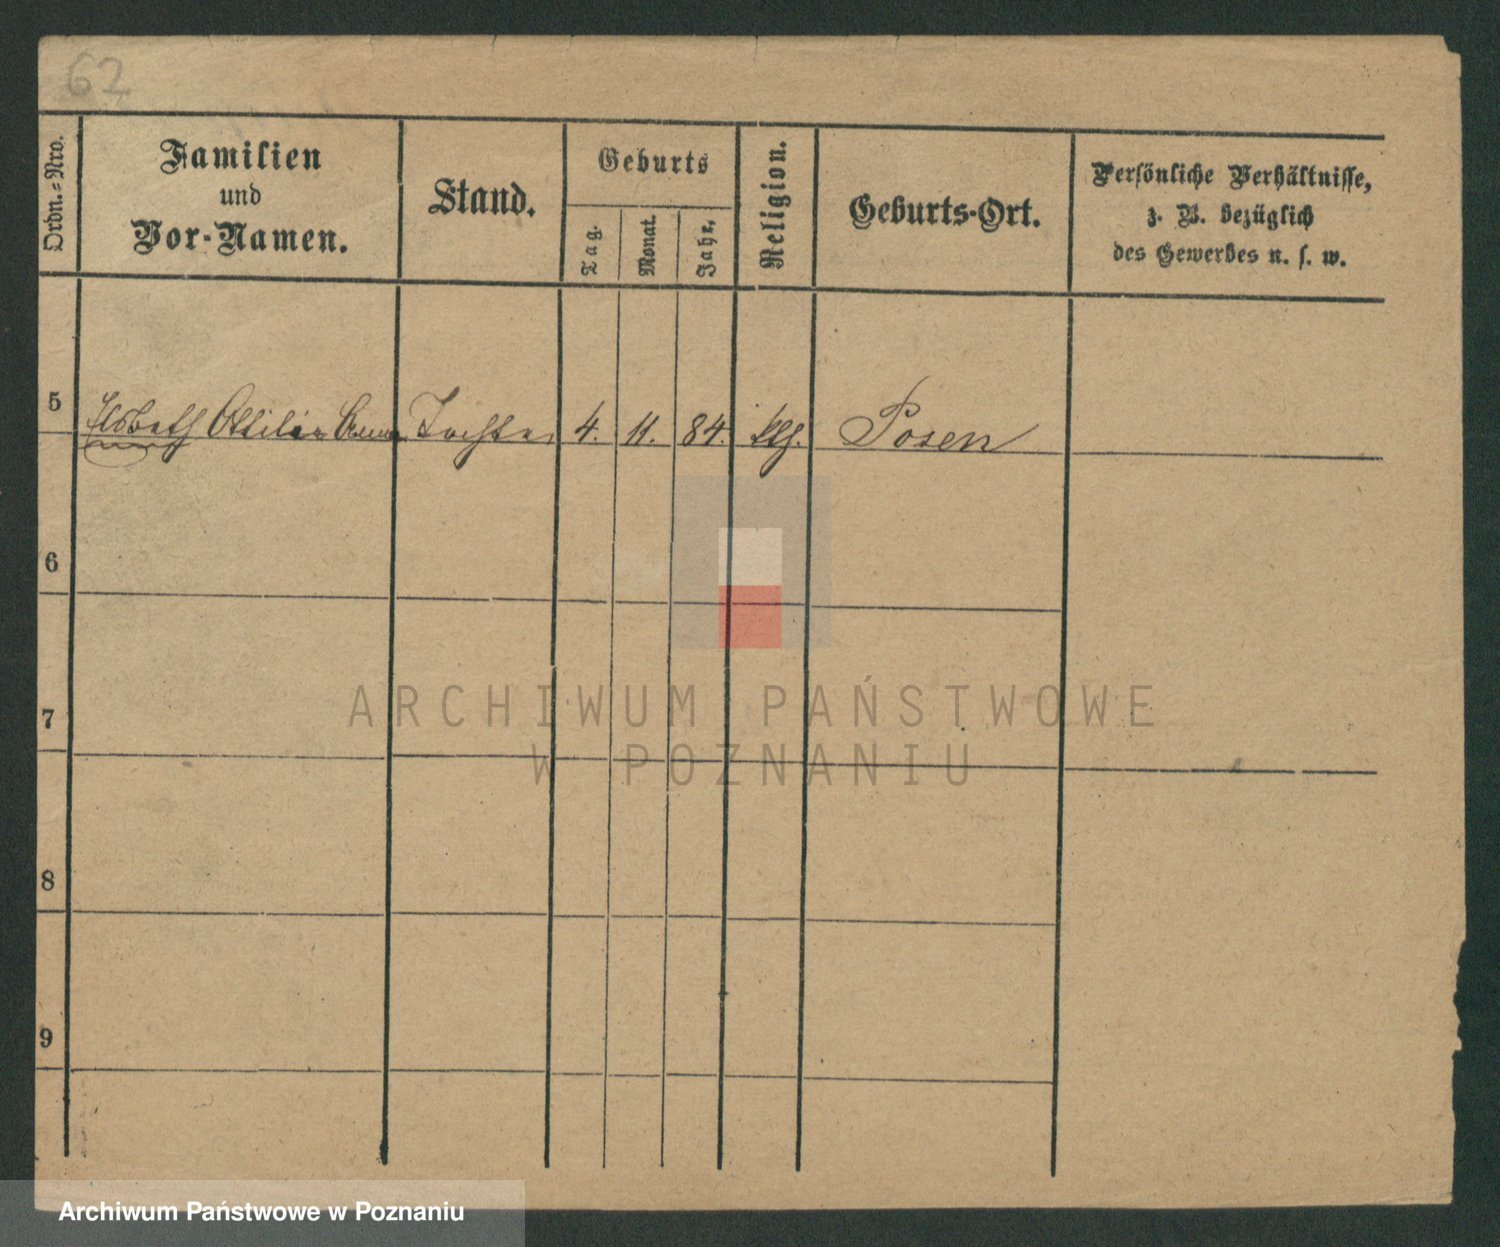 62
Ordn.=Nro.
Familien
und
Vor-Namen.
Stand.
Geburts
Tag.
Monat.
Jahr.
Religion.
Geburts-Ort.
Persönliche Verhältnisse,
z. B. bezüglich
des Gewerbes u. s. w.
5 Elsbeth Ottilie Tochter 4. 11. 84. kth. Posen
6
7
8
9
ARCHIWUM PAŃSTWOWE
W POZNANIU
Archiwum Państwowe w Poznaniu